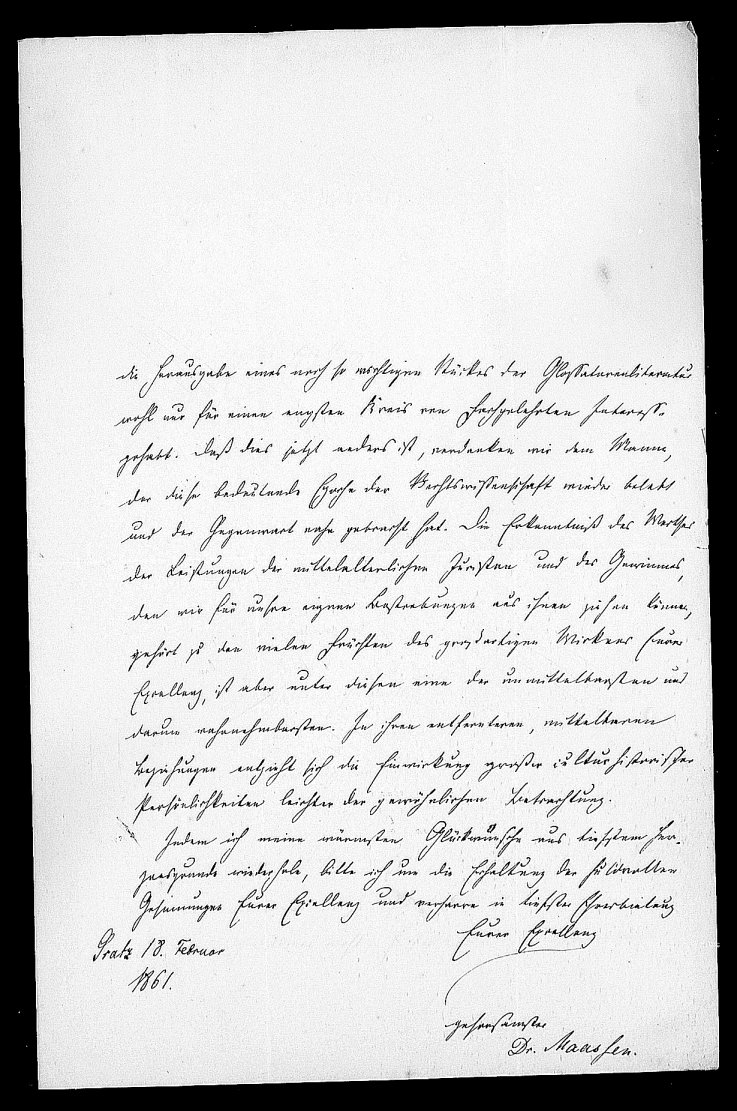 die Herausgabe eines noch so wichtigen Stückes der Glossatorenliteratur
wohl nur für einen engsten Kreis von Fachgelehrten Interesse
gehabt. Daß dies jetzt anders ist, verdanken wir dem Manne,
der diese bedeutende Epoche der Rechtswissenschaft wieder belebt
und der Gegenwart nahe gebracht hat. Die Erkenntniß des Werthes
der Leistungen der mittelalterlichen Juristen und des Gewinnes,
den wir für unsre eignen Bestrebungen aus ihnen ziehen können,
gehört zu den vielen Früchten des großartigen Wirkens Eurer
Excellenz, ist aber unter diesen eine der unmittelbarsten und
darum wahrnehmbarsten. In ihren entfernteren, mittelbaren
Beziehungen entzieht sich die Einwirkung großer culturhistorischer
Persönlichkeiten leichter der gewöhnlichen Betrachtung.
Indem ich meine wärmsten Glückwünsche aus tiefstem Her-
zensgrunde wiederhole, bitte ich um die Erhaltung der huldvollen
Gesinnungen Eurer Excellenz und verharre in tiefster Ehrerbietung
Eurer Excellenz
Gratz 18. Februar
1861.
gehorsamster
Dr. Maassen.